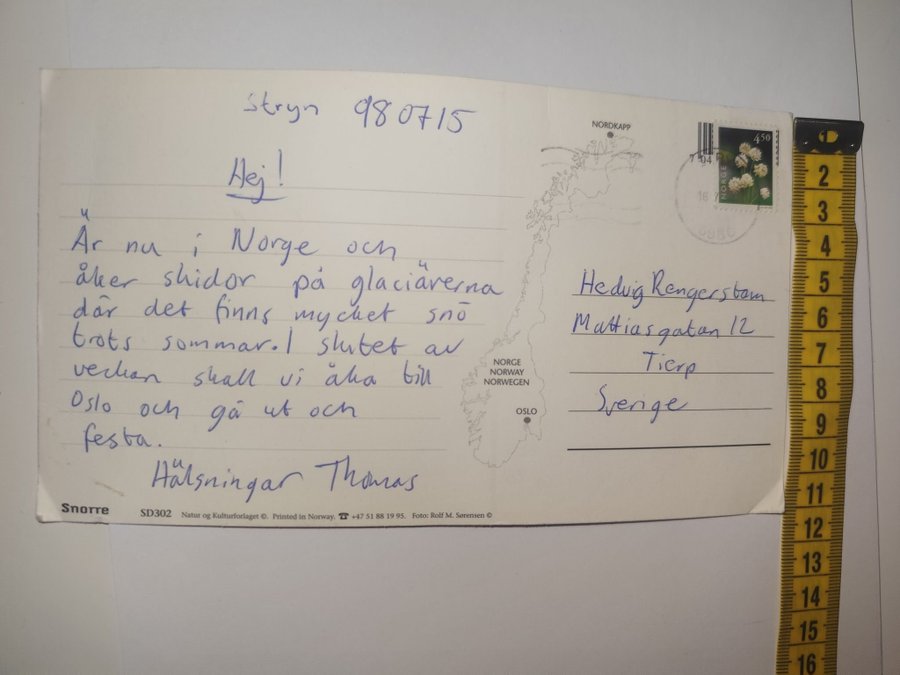 Stryn 980715
Hej!
Är nu i Norge och
åker skidor på glaciärerna
där det finns mycket snö
trots sommar. I slutet av
veckan skall vi åka till
Oslo och gå ut och
festa.
Hälsningar Thomas
Snorre
SD302 Natur og Kulturforlaget ©. Printed in Norway. ☎ +47 51 88 19 95. Foto: Rolf M. Sørensen ©
NORDKAPP
NORGE
NORWAY
NORWEGEN
OSLO
450
NORGE
Hedvig Rengerstam
Mattiasgatan 12
Tierp
Sverige
1
2
3
4
5
6
7
8
9
10
11
12
13
14
15
16